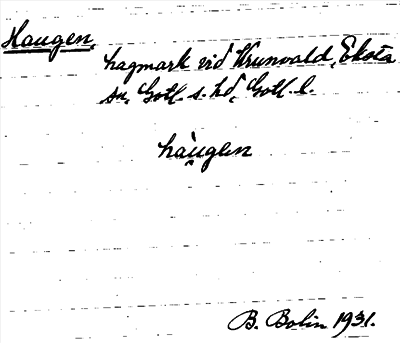 Haugen,
hagmark vid Krunvald, Eksta
sn, Gotl. s. hd, Gotl. l.
hàu̯gen
B. Bolin 1931.